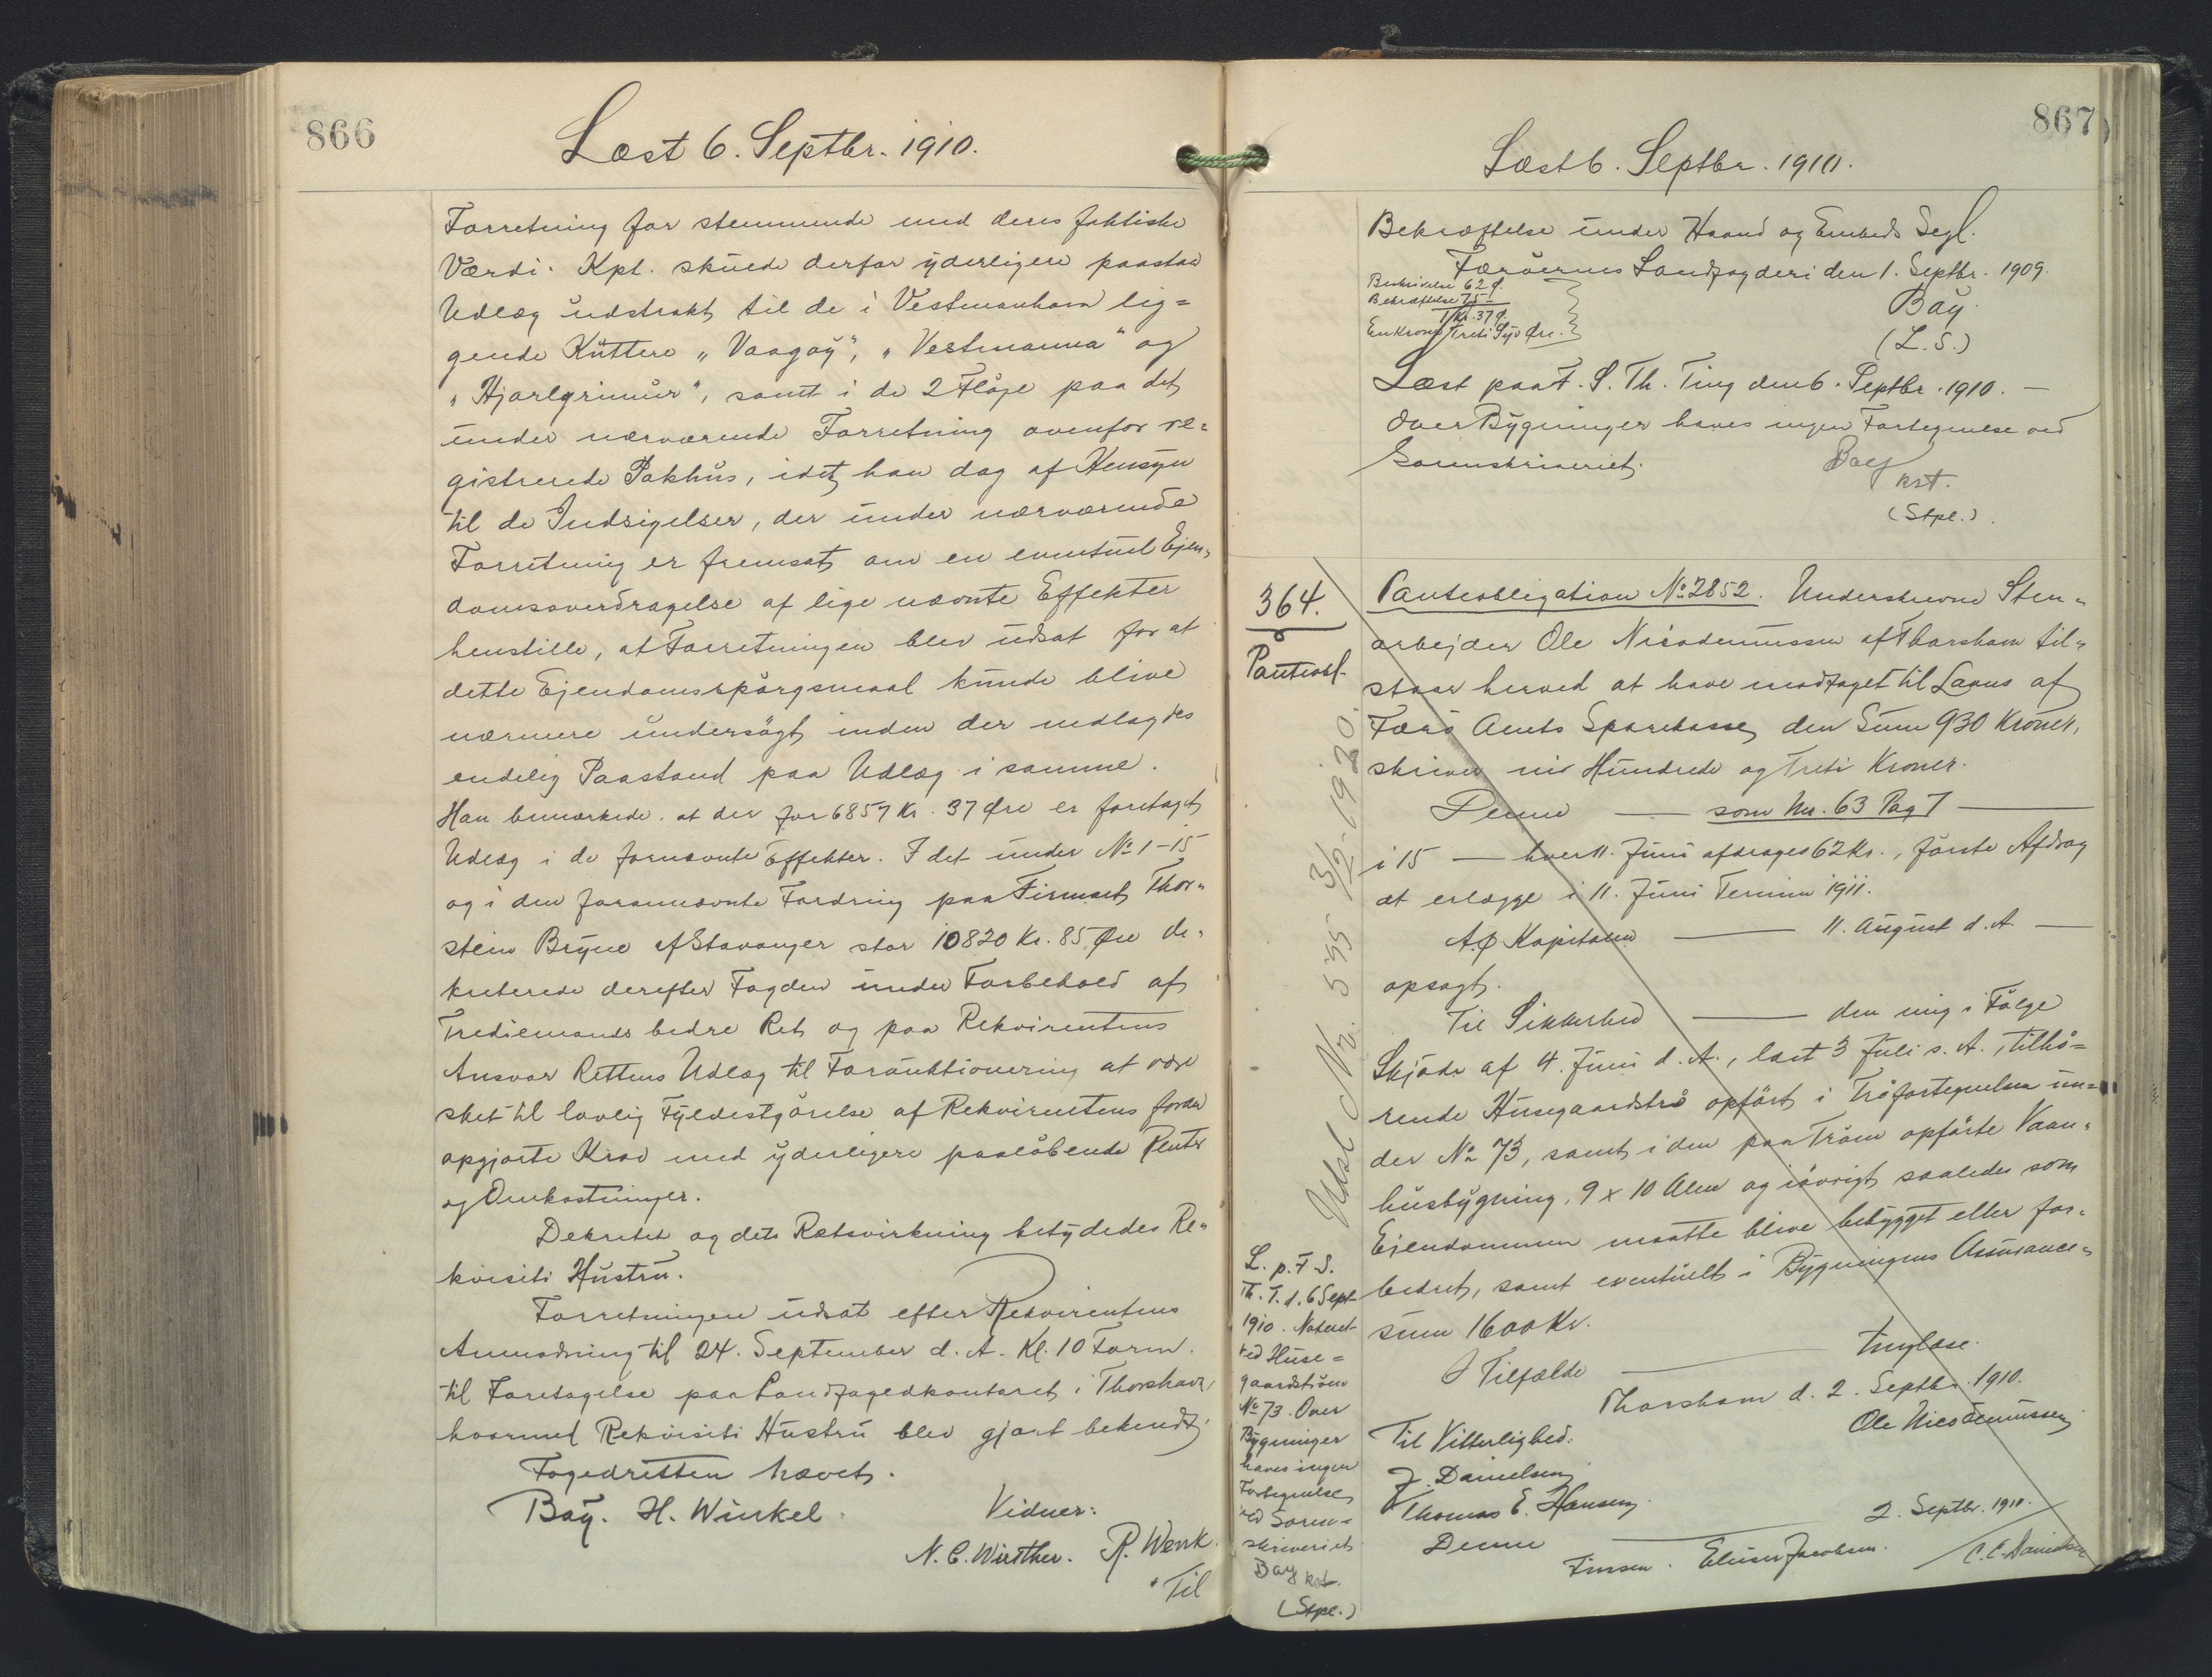 866
Læst 6. Septbr. 1910.
Forretning for stemmende med deres faktiske
Værdi. Kpt. skulde derfor yderligere paastaa
Udlæg udstrakt til de i Vestmanhavn lig=
gende Kuttere „Vaagoy“, „Vestmanna“ og
„Hjarlgrimur“, samt i de 2 Fløje paa det
under nærværende Forretning ovenfor re=
gistrerede Pakhus, idet han dog af Hensyn
til de Indsigelser, der under nærværende
Forretning er fremsat om en eventuel Ejen=
domsoverdragelse af lige nævnte Effekter
henstille, at Forretningen blev udsat for at
dette Ejendomsspørgsmaal kunde blive
nærmere undersøgt inden der nedlagdes
endelig Paastand paa Udlæg i samme.
Han bemærkede. at der for 6857 Kr. 37 Øre er foretaget
Udlæg i de fornævnte Effekter. I det under № 1-15
og i den forannævnte Fordring paa Firmaet Thor=
stein Bryne af Stavanger stor 10820 Kr. 85 Øre de=
kreterede derefter Fogden under Forbehold af
Trediemands bedre Ret og paa Rekvirentens
Ansvar Rettens Udlæg til Forauktionering at være
sket til lovlig Fyldestgørelse af Rekvirentens foran
opgjorte Krav med yderligere paaløbende Renter
og Omkostninger.
Dekretet og dets Retsvirkning betydedes Re=
kvisiti Hustru.
Forretningen udsat efter Rekvirentens
Anmodning til 24. September d. A. Kl. 10 Form.
til Foretagelse paa Landfogedkontoret i Thorshavn,
hvormed Rekvisiti Hustru blev gjort bekendt.
Fogedretten hævet.
Bay. H. Winkel. Vidner:
N. C. Winther. R. Wenk.
Til
867
Læst 6. Septbr. 1910.
Bekræftelse under Haand og Embeds Segl.
Færøernes Landfogderi den 1. Septbr. 1909.
Beskrivelse 62 Ø.
Bekræftelse 75 -
1 Kr. 37 Ø.
En Krone Treti Syv Øre.
Bay.
(L. S.)
Læst paa F. S. Th. Ting den 6. Septbr. 1910. —
Over Bygninger haves ingen Fortegnelse ved
Sorenskriveriet.
Bay
kst.
(Stpl.).
364.
Panteobl.
Panteobligation № 2852. Underskrevne Sten=
arbejder Ole Nicodemussen af Thorshavn til=
staar herved at have modtaget til Laans af
Færø Amts Sparekasse den Sum 930 Kroner,
skriver ni Hundrede og Treti Kroner.
Denne — som Nr. 63 Pag 7 —
i 15 — hver 11. Juni afdrages 62 Kr., første Afdrag
at erlægge i 11. Juni Termin 1911.
A.Ø Kapitalen — 11. August d. A. —
opsagt.
Til Sikkerhed — den mig i Følge
Skjøde af 4. Juni d. A., læst 3 Juli s. A., tilhø=
rende Husegaardstrø opført i Trøfortegnelsen un=
der № 73, samt i den paa Trøen opførte Vaan=
husbygning, 9 x 10 Alen og iøvrigt saaledes som
Ejendommen maatte blive bebygget eller for=
bedret, samt eventuelt i Bygningens Assurance=
sum 1600 Kr.
I Tilfælde — tinglæse.
Thorshavn d. 2. Septbr. 1910.
Ole Nicodemussen
Til Vitterlighed:
J. Danielsen
Thomas E. Hansen.
Denne — 2. Septbr. 1910.
Finsen. Eliesar Jacobsen. C.C. Danielsen
Udsl. Nr. 555 3/2-1920.
L. p. F. S.
Th. T. d. 6 Sept.
1910. Noteret
ved Huse=
gaardstrøen
№ 73. Over
Bygninger
haves ingen
Fortegnelse
ved Soren=
skriveriet
Bay kst.
(Stpl.)